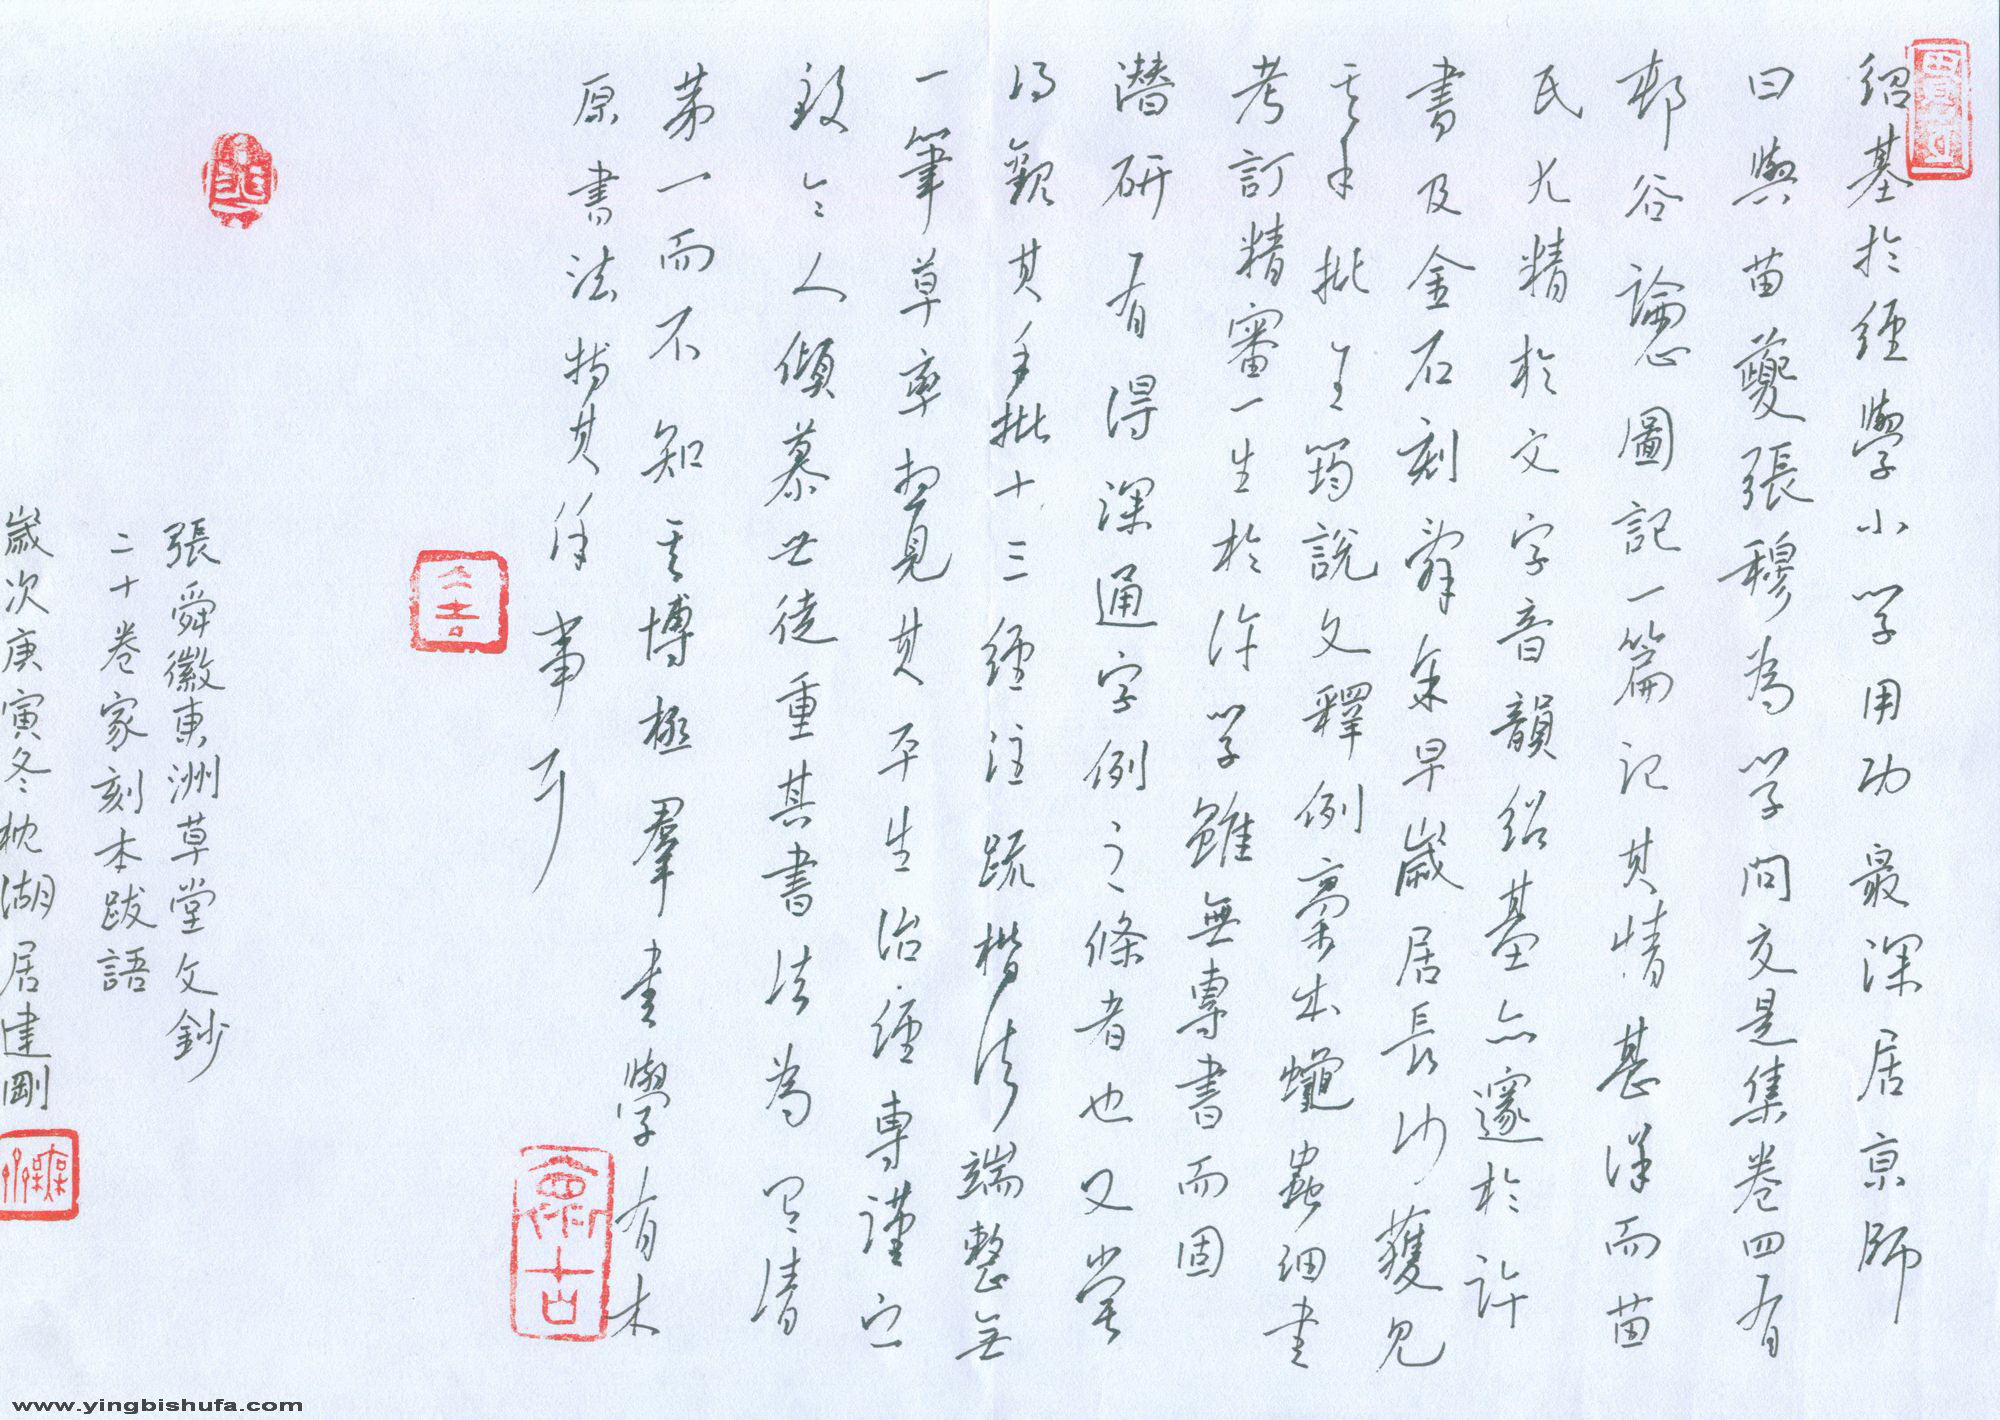 紹基於經學小学用功最深居京師
日與苗夔張穆為学問交是集卷四有
邨谷論心圖記一篇記其情甚详而苗
氏尤精於文字音韻紹基亦邃於許
書及金石刻辞余早歲居長沙獲見
其手批王筠說文釋例稾本蠅蟲细書
考訂精審一生於许学雖無專書而固
潛研有得深通字例之條者也又嘗
得觀其手批十三經注疏楷法端整無
一筆草率想見其平生治經專謹之
致令人傾慕世徒重其書法為有清
第一而不知其博極羣書學有本
原書法特其餘事耳
張舜徽東洲草堂文鈔
二十卷家刻本跋語
歲次庚寅冬枕湖居建剛
www.yingbishufa.com